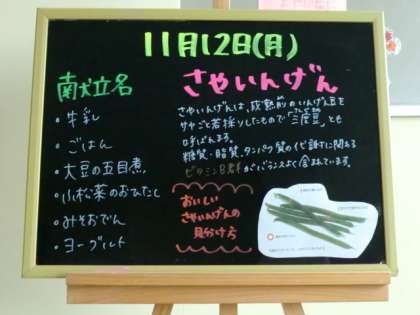 11月12日(月)
献立名
・牛乳
・ごはん
・大豆の五目煮
・小松菜のおひたし
・みそおでん
・ヨーグルト
さやいんげん
さやいんげんは、成熟前のいんげん豆を
サヤごと若採りしたもので「三度豆」とも
呼ばれます。
糖質・脂質、タンパク質の代謝に関わる
ビタミンB群がバランスよく含まれています。
おいしい
さやいんげんの
見分け方